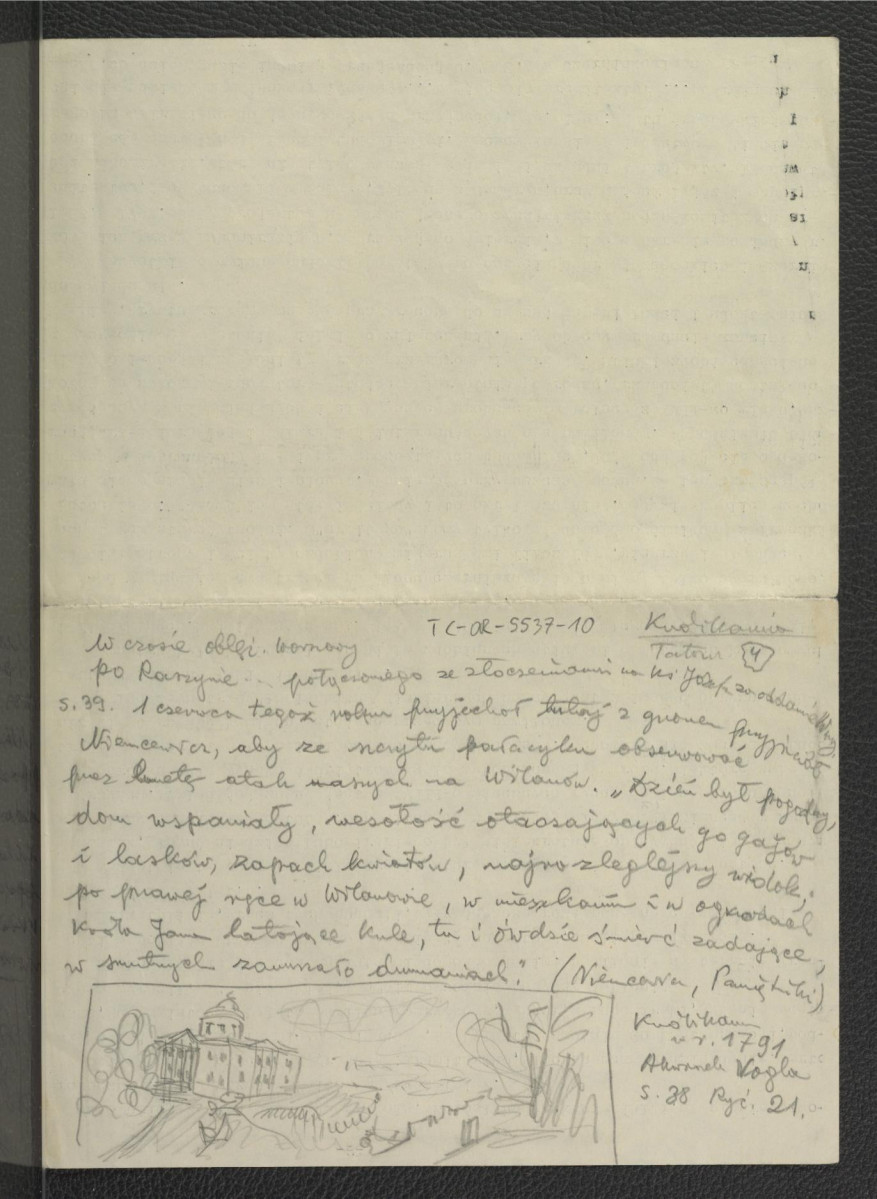 TC-OR-5537-10
Królikarnia
4
W czasie oblęż. Warszawy
po Raszynie połączonego ze złoczeniami na Ks Józefa za oddanie
s. 39. 1 czerwca tegoż roku przyjechał tutaj z gronem przyjaciół
Niemcewicz, aby ze szczytu pałacyku obserwować
przez lunetę atak naszych na Wilanów. „Dzień był pogodny,
dom wspaniały, wesołość otaczających go gajów
i lasków, zapach kwiatów, najrozleglejszy widok,
po prawej ręce w Wilanowie, w mieszkaniu i w ogrodach
Króla Jana latające kule, tu i ówdzie śmierć zadające,
w smutnych zanurzało dumaniach." (Niemcewicz, Pamiętniki)
Królikarn
w r. 1791
Akwarela Vogla
s. 38 Ryc. 21.